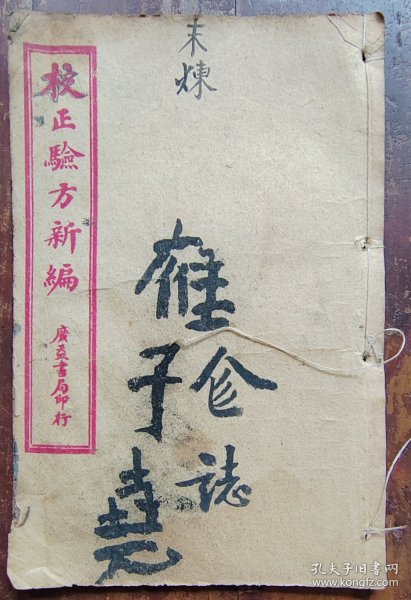 校正驗方新編
廣益書局印行
煉
子堯
誌
孔夫子旧书网
www.kongfz.com